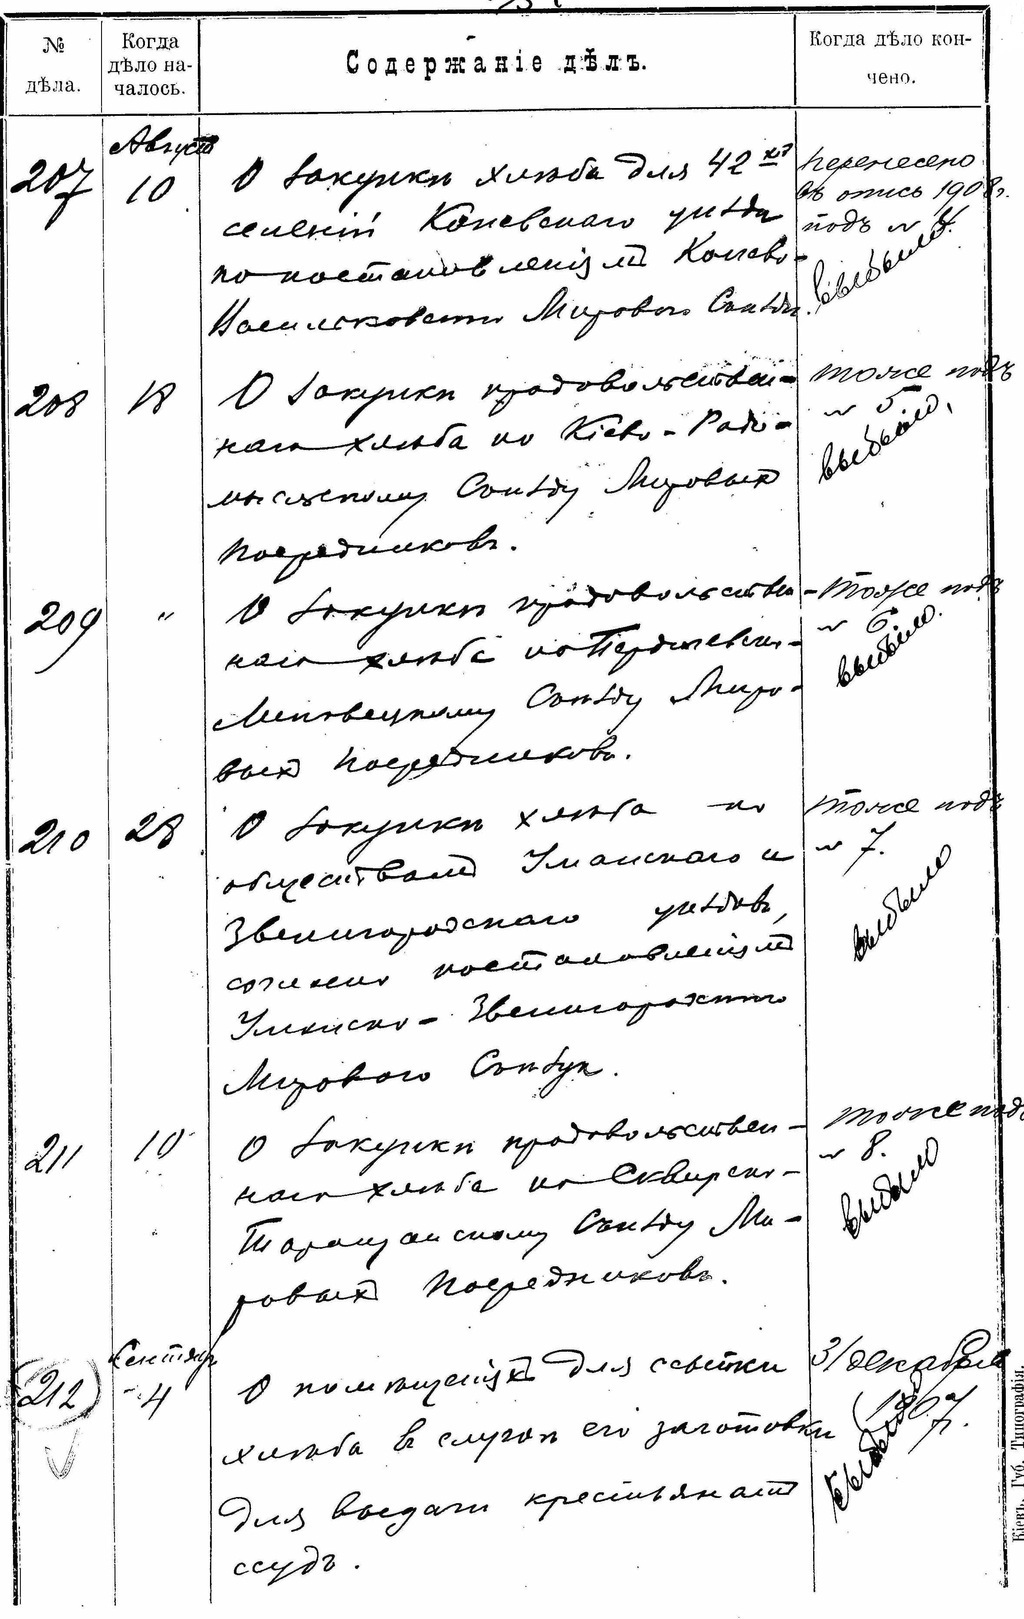 № дѣла.
Когда дѣло началось.
Содержаніе дѣлъ.
Когда дѣло кончено.
207
Августъ 10
О закупкѣ хлѣба для 42 хъ
селеній Каневскаго уѣзда
по постановленіямъ Канево-
Васильковскаго Мирового Съѣзда.
Перенесено
въ опись 1908 г.
подъ № 4.
Выбыло
208
18
О закупкѣ продовольствен-
наго хлѣба по Кіево-Радо-
мысльскому Съѣзду Мировыхъ
Посредниковъ.
тоже подъ
№ 5
выбыло,
209
"
О закупкѣ продовольствен-
наго хлѣба по Бердичевско-
Липовецкому Съѣзду Миро-
выхъ Посредниковъ.
тоже подъ
№ 6
выбыло.
210
28
О закупкѣ хлѣба по
обществамъ Уманскаго и
Звенигородскаго уѣздовъ,
согласно постановленіямъ
Уманско-Звенигородскаго
Мирового Съѣзда.
тоже подъ
№ 7.
выбыло
211
10
О закупкѣ продовольствен-
наго хлѣба по Сквирско-
Таращанскому Съѣзду Ми-
ровыхъ Посредниковъ.
тоже подъ
№ 8.
выбыло
212
Сентябр 4
О помѣщеніяхъ для ссыпки
хлѣба въ случаѣ его заготовки
для выдачи крестьянамъ
ссудъ.
31 декабря
1907.
Выбыло
Кіевъ. Губ. Типографія.